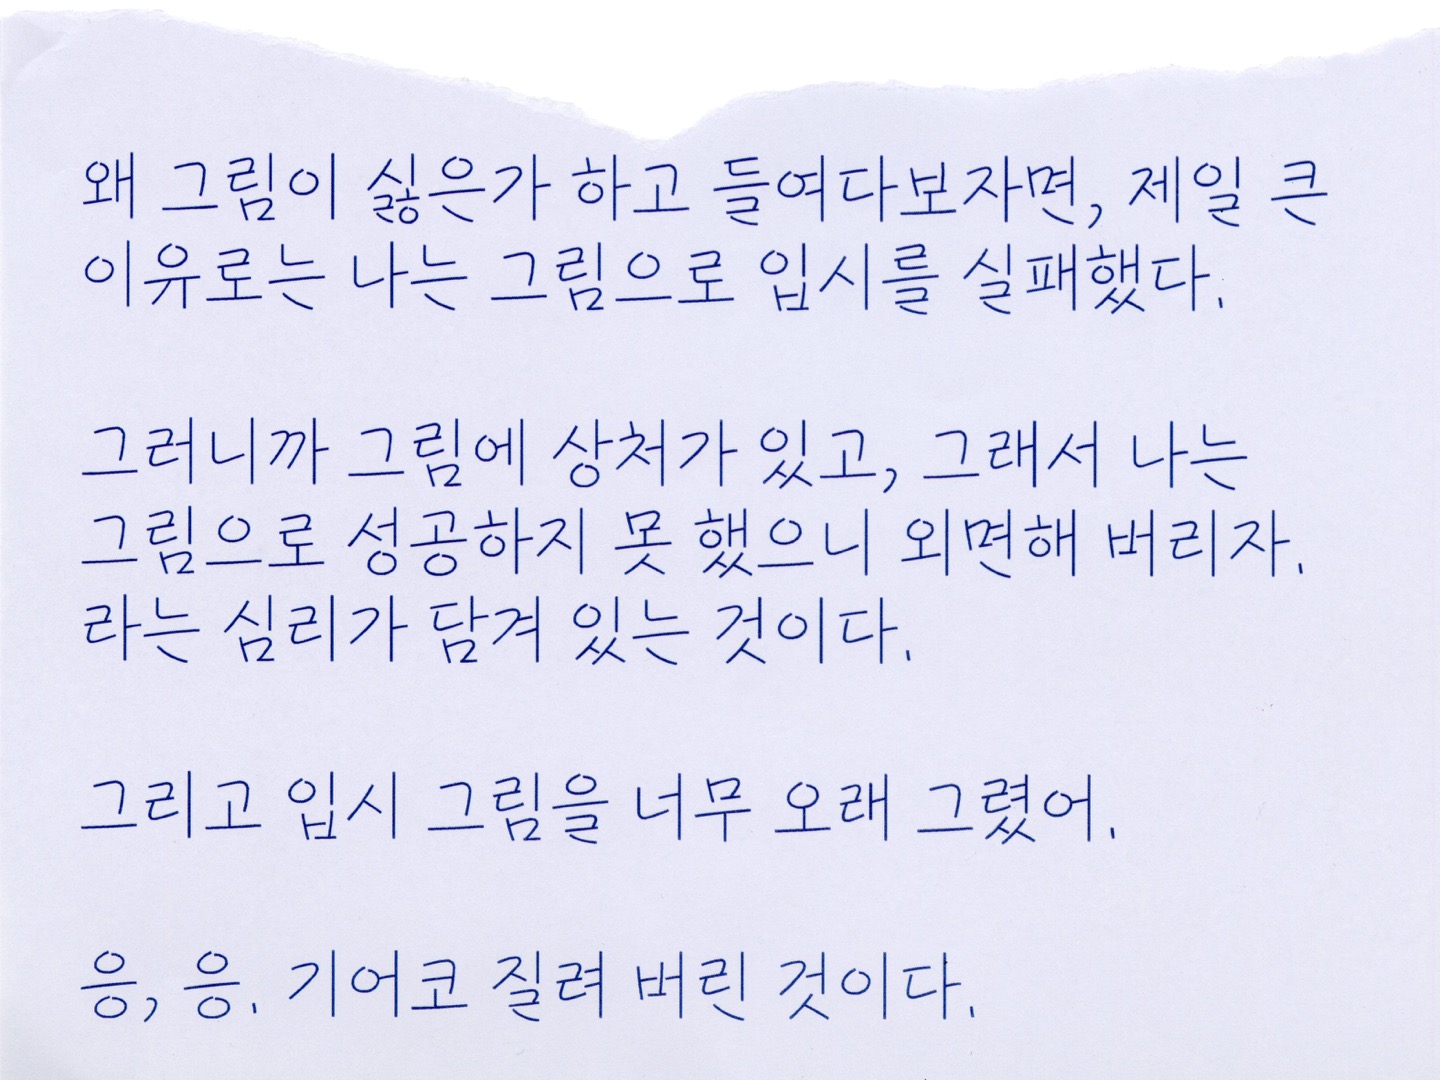 왜 그림이 싫은가 하고 들여다보자면, 제일 큰
이유로는 나는 그림으로 입시를 실패했다.
그러니까 그림에 상처가 있고, 그래서 나는
그림으로 성공하지 못 했으니 외면해 버리자.
라는 심리가 담겨 있는 것이다.
그리고 입시 그림을 너무 오래 그렸어.
응, 응. 기어코 질려 버린 것이다.